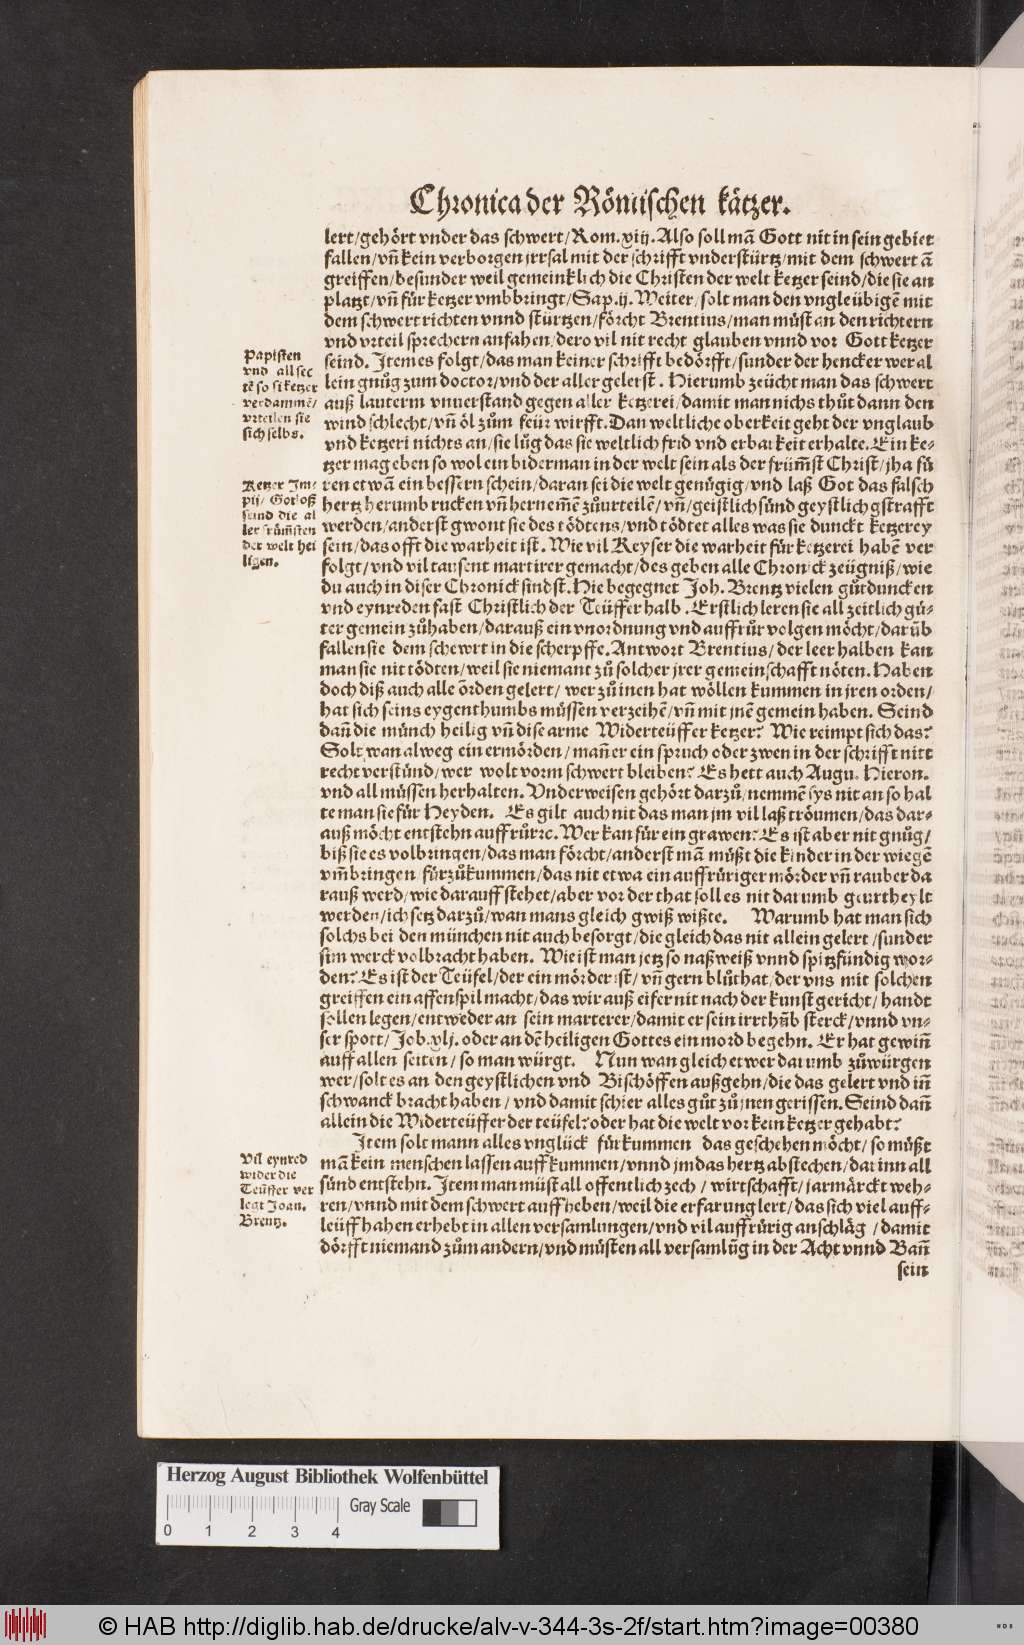 Chronica der Römischen kätzer.
lert/gehört vnder das schwert/Rom.xiij.Also soll mā Gott nit in sein gebiet
fallen/vñ kein verborgen jrrsal mit der schrifft vnderstürtz/mit dem schwert ā
greiffen/besunder weil gemeinklich die Christen der welt ketzer seind/die sie an
platzt/vñ für ketzer vmbbringt/Sap.ij. Weiter/solt man den vngleübigē mit
dem schwert richten vnnd stürtzen/förcht Brentius/man müst an den richtern
vnd vrteil sprechern anfahen/dero vil nit recht glauben vnnd vor Gott ketzer
Papisten
vnd all sec
tē so si ketzer
verdammē/
vrteilen sie
sich selbs.
seind. Item es folgt/das man keiner schrifft bedörfft/sunder der hencker wer al
lein gnůg zum doctor/vnd der aller gelerst. Hierumb zeücht man das schwert
auß lauterm vnuerstand gegen aller ketzerei/damit man nichs thůt dann den
wind schlecht/vñ öl zům feür wirfft. Dan weltliche oberkeit geht der vnglaub
vnd ketzeri nichts an/sie lůg das sie weltlich frid vnd erbarkeit erhalte. Ein ke-
tzer mag eben so wol ein biderman in der welt sein als der frümst Christ/jha fü
Ketzer Im-
pij/ Gotloß
seind die al
ler frümsten
der welt hei
ligen.
ren etwā ein bessern schein/daran sei die welt genügig/vnd laß Got das falsch
hertz herumb rucken vñ hernemē zůurteilē/vñ/geistlich sünd geystlich gstrafft
werden/anderst gwont sie des tödtens/vnd tödtet alles was sie dunckt ketzerey
sein/das offt die warheit ist. Wie vil Keyser die warheit für ketzerei habē ver
folgt/vnd vil tausent martirer gemacht/des geben alle Chronick zeügniß/wie
du auch in diser Chronick findst. Hie begegnet Joh. Brentz vielen gůtduncken
vnd eynreden fast Christlich der Teüffer halb. Erstlich leren sie all zeitlich gü-
ter gemein zůhaben/darauß ein vnordnung vnd auffrůr volgen möcht/darüb
fallen sie dem schewrt in die scherpffe. Antwort Brentius/der leer halben kan
man sie nit tödten/weil sie niemant zů solcher jrer gemeinschafft nöten. Haben
doch diß auch alle örden gelert/ wer zů inen hat wöllen kummen in jren orden/
hat sich seins eygenthumbs müssen verzeihē/vñ mit jnē gemein haben. Seind
dañ die münch heilig vñ dise arme Widerteüffer ketzer? Wie reimpt sich das?
Solt wan alweg ein ermörden/mañ er ein spruch oder zwen in der schrifft nitt
recht verstünd/wer wolt vorm schwert bleiben? Es hett auch Augu. Hieron.
vnd all müssen herhalten. Vnderweisen gehört darzů/nemmē sys nit an so hal
te man sie für Heyden. Es gilt auch nit das man jm vil laß tröumen/das dar-
auß möcht entstehn auffrůre. Wer kan für ein grawen? Es ist aber nit gnůg/
biß sie es volbringen/das man förcht/anderst mā müßt die kinder in der wiegē
vm̄bringen fürzůkummen/das nit etwa ein auffrüriger mörder vñ rauber da
rauß werd/wie darauff stehet/aber vor der that soll es nit darumb geurtheylt
werden/ich setz darzů/wan mans gleich gwiß wißte. Warumb hat man sich
solchs bei den münchen nit auch besorgt/die gleich das nit allein gelert/sunder
sim werck volbracht haben. Wie ist man jetz so naß weiß vnnd spitzfündig wor-
den? Es ist der Teüfel/der ein mörder ist/vñ gern blůt hat/der vns mit solchen
greiffen ein affenspil macht/das wir auß eifer nit nach der kunst gericht/handt
sollen legen/entweder an sein marterer/damit er sein irrthūb sterck/vnnd vn-
ser spott/Job.xlj. oder an dē heiligen Gottes ein mord begehn. Er hat gewiñ
auff allen seiten/so man würgt. Nun wan gleich etwer darumb zůwürgen
wer/solt es an den geystlichen vnd Bischöffen außgehn/die das gelert vnd iñ
schwanck bracht haben/vnd damit schier alles gůt zů jnen gerissen. Seind dañ
allein die Widerteüffer der teüfel? oder hat die welt vor kein ketzer gehabt?
Item solt mann alles vnglück fürkummen das geschehen möcht/so müßt
Vil eynred
wider die
Teüffer ver
legt Joan.
Brentz.
mā kein menschen lassen auffkummen/vnnd jm das hertz abstechen/darinn all
sünd entstehn. Item man müst all offentlich zech/wirtschafft/jarmärckt weh-
ren/vnnd mit dem schwert auffheben/weil die erfarung lert/das sich viel auff-
leüff haben erhebt in allen versamlungen/vnd vil auffrürig anschläg/damit
dörfft niemand zům andern/vnd müsten all versamlůg in der Acht vnnd Bañ
sein
Herzog August Bibliothek Wolfenbüttel
Gray Scale
0 1 2 3 4
© HAB http://diglib.hab.de/drucke/alv-v-344-3s-2f/start.htm?image=00380